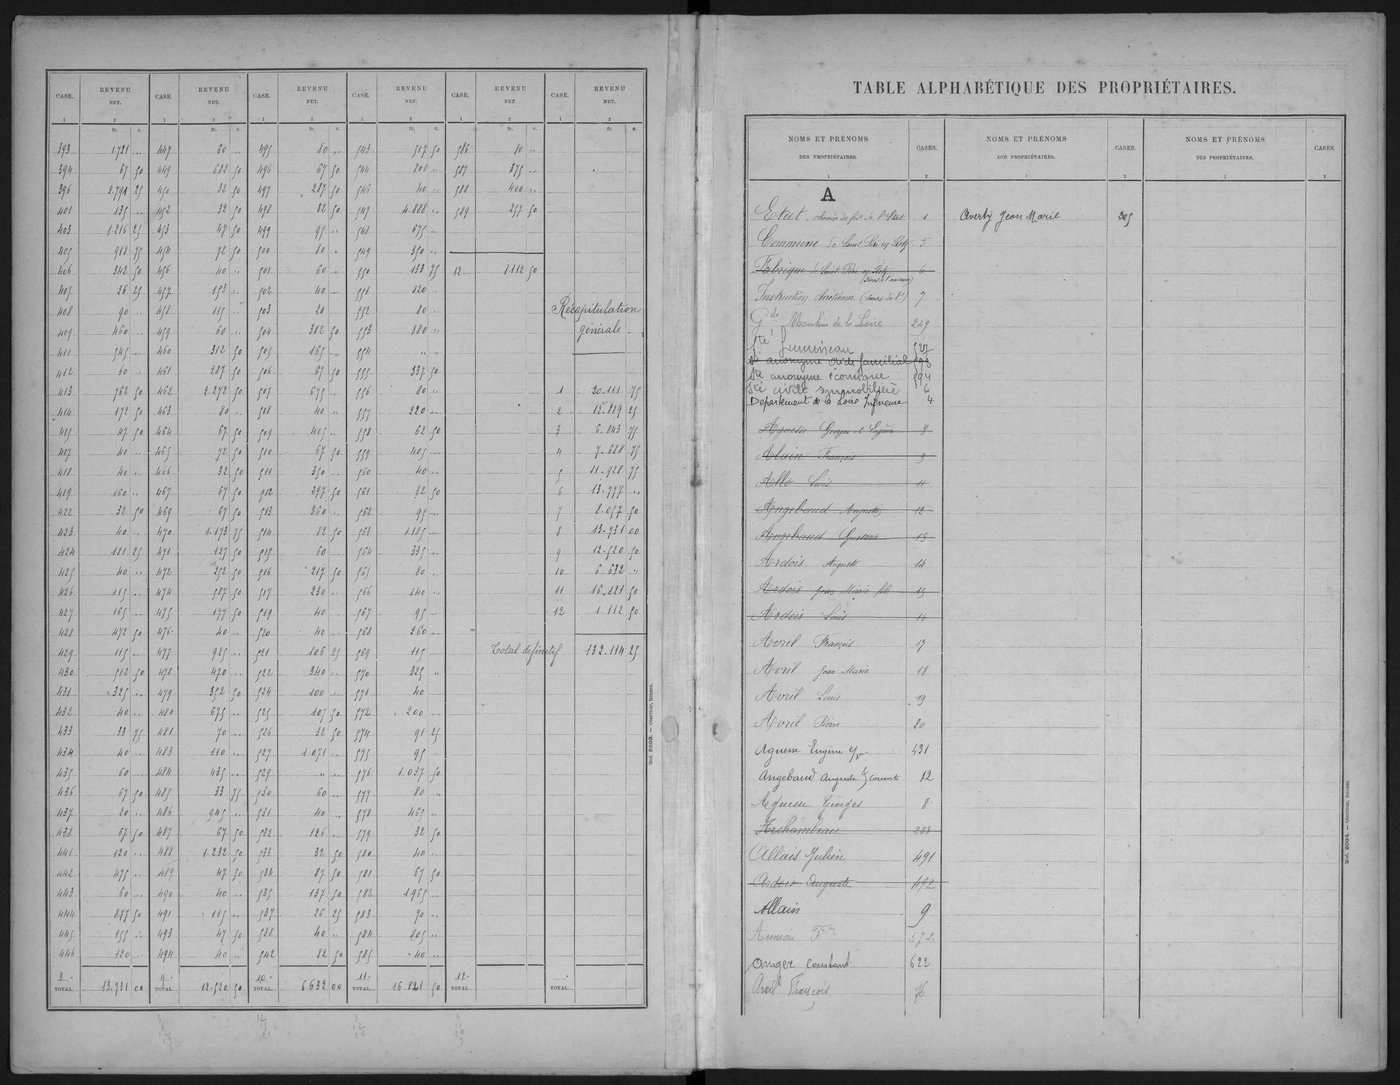 CASE. REVENU NET. CASE. REVENU NET. CASE. REVENU NET. CASE. REVENU NET. CASE. REVENU NET. CASE. REVENU NET.
1 2 1 2 1 2 1 2 1 2 1 2
fr. c. fr. c. fr. c. fr. c. fr. c. fr. c.
393 1.721 .. 447 60 .. 495 80 .. 543 517 50 586 80 ..
394 67 50 449 682 50 496 67 50 544 801 .. 587 875 ..
396 2.791 25 450 32 50 497 287 50 546 40 .. 588 400 ..
401 135 .. 452 32 50 498 32 50 547 4.888 .. 589 257 50
403 1.216 25 453 47 50 499 95 .. 548 675 ..
405 918 75 454 72 50 500 80 .. 549 350 ..
406 342 50 456 40 .. 501 60 .. 550 133 75 12 1.112 50
407 26 25 457 153 .. 502 40 .. 551 120 ..
408 90 .. 458 115 .. 503 20 .. 552 80 .. Récapitulation
409 460 .. 459 60 .. 504 382 50 553 380 .. générale
411 545 .. 460 312 50 505 165 .. 554 .. ..
412 60 .. 461 287 50 506 67 50 555 337 50
413 762 50 462 2.272 50 507 675 .. 556 80 .. 1 20.111 75
414 172 50 463 80 .. 508 40 .. 557 220 .. 2 12.219 25
415 47 50 464 67 50 509 405 .. 558 62 50 3 6.243 75
417 40 .. 465 72 50 510 67 50 559 405 .. 4 7.628 75
418 40 .. 466 32 50 511 350 .. 560 40 .. 5 11.928 75
419 160 .. 467 67 50 512 297 50 561 32 50 6 13.777 ..
422 32 50 469 67 50 513 360 .. 562 95 .. 7 8.057 50
423 40 .. 470 1.173 75 514 82 50 563 1.185 .. 8 13.731 00
424 181 25 471 127 50 515 60 .. 564 335 .. 9 12.520 50
425 40 .. 472 252 50 516 217 50 565 80 .. 10 6.632 ..
426 115 .. 474 587 50 517 230 .. 566 140 .. 11 16.121 50
427 165 .. 475 177 50 519 40 .. 567 95 .. 12 1.112 50
428 472 50 476 40 .. 520 40 .. 568 260 ..
429 115 .. 477 925 .. 521 106 25 569 115 .. Total définitif 132.114 25
430 512 50 478 470 .. 522 340 .. 570 325 ..
431 325 .. 479 352 50 524 100 .. 571 40 ..
432 40 .. 480 675 .. 525 107 50 572 200 ..
433 33 75 481 70 .. 526 32 50 574 91 25
434 40 .. 483 110 .. 527 1.071 .. 575 95 ..
435 60 .. 484 435 .. 529 .. .. 576 1.037 50
436 67 50 485 33 75 530 60 .. 577 80 ..
437 20 .. 486 945 .. 531 40 .. 578 465 ..
438 67 50 487 67 50 532 126 .. 579 32 50
441 120 .. 488 1.232 50 533 32 50 580 40 ..
442 475 .. 489 47 50 534 87 50 581 67 50
443 60 .. 490 40 .. 535 127 50 582 1.965 ..
444 877 50 491 115 .. 537 26 25 583 70 ..
445 155 .. 493 47 50 538 40 .. 584 805 ..
446 120 .. 494 40 .. 542 82 50 585 40 ..
8 TOTAL. 13.731 00 9 TOTAL. 12.520 50 10 TOTAL. 6.632 00 11 TOTAL. 16.121 50 12 TOTAL. TOTAL.
Mod. 2003. — Oberthür, Rennes.
TABLE ALPHABÉTIQUE DES PROPRIÉTAIRES.
NOMS ET PRÉNOMS DES PROPRIÉTAIRES. CASES. NOMS ET PRÉNOMS DES PROPRIÉTAIRES. CASES. NOMS ET PRÉNOMS DES PROPRIÉTAIRES. CASES.
1 2 1 2 1 2
A
Etat chemin de fer de l'Etat 1 Averty Jean Marie 205
Commune de Saint Père en Retz 5
Fabrique de Saint Père en Retz 6
Instruction chrétienne (Sœurs de l') 7
Gds Moulins de la Loire 249
Sté Lumineau 527
Sté anonyme aide familiale 593
Sté anonyme économique 594
Sté civile immobilière 6
Département de la Loire Inférieure 4
Aguesse Georges et Eugène 8
Alain François 9
Allo Louis 11
Angebaud Auguste 12
Angebaud Gustave 13
Ardois Auguste 14
Ardois Jean Marie fils 15
Ardois Louis 16
Avril François 17
Avril Jean Marie 18
Avril Louis 19
Avril Pierre 20
Aguesse Eugène 431
Angebaud Auguste 12
Aguesse Georges 8
Archambeau 288
Allais Julien 491
Ardois Auguste 492
Allain 9
Auneau 572
Anger Constant 622
François 76
Mod. 2004. — Oberthür, Rennes.